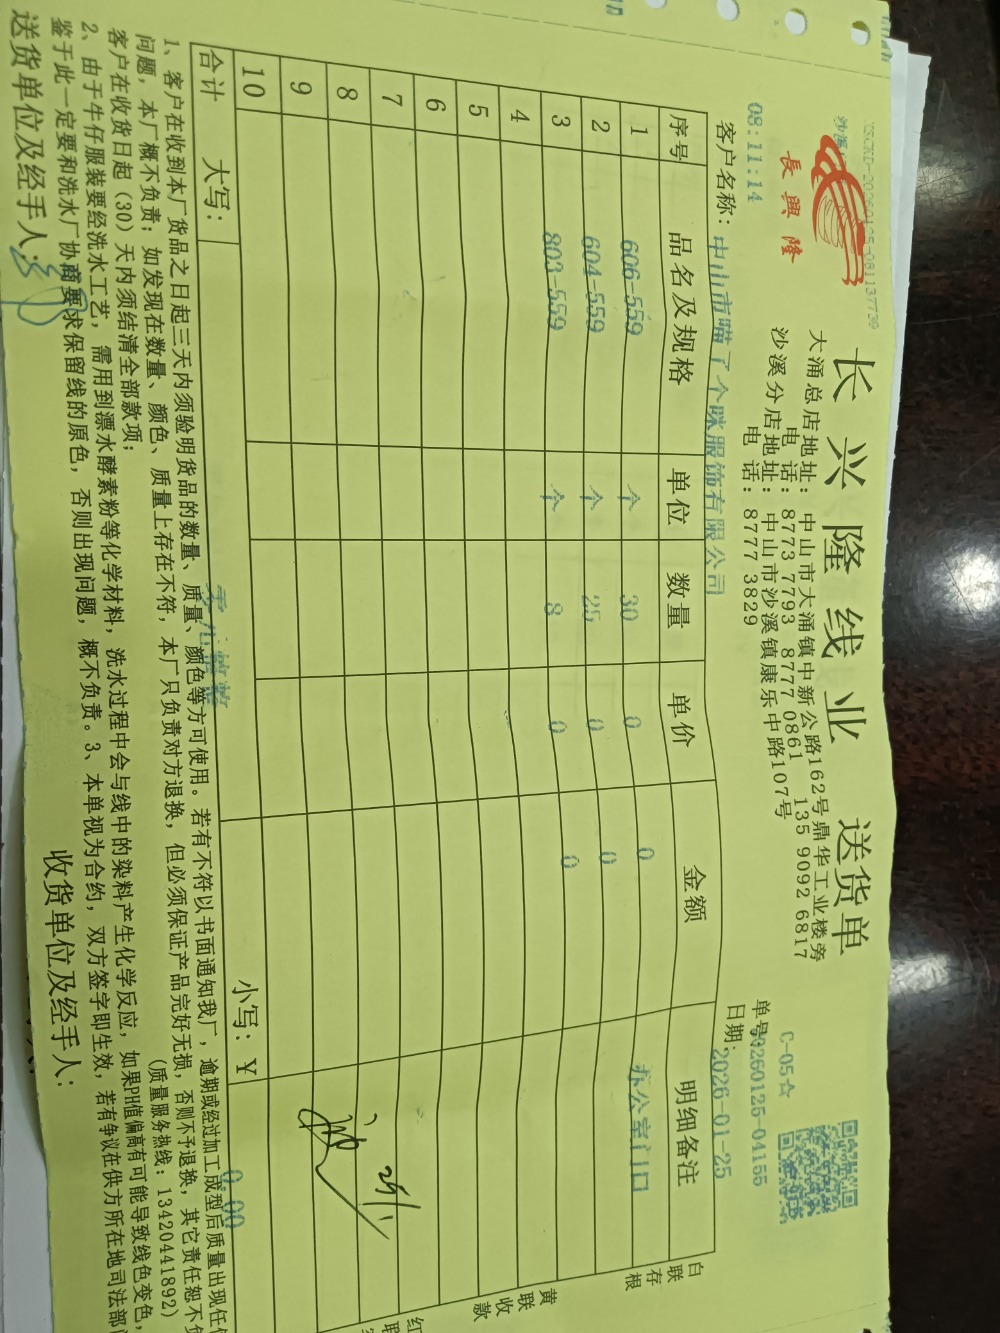 YSCKD-20260125-081137739
長興隆
长兴隆线业 送货单
大涌总店地址：中山市大涌镇中新公路162号鼎华工业楼旁
电 话：8773 7793 8777 0861 135 9092 6817
沙溪分店地址：中山市沙溪镇康乐中路107号
电 话：8777 3829
C-05☆
08:11:14
单号:20260125-04155
客户名称：中山市喵了个咪服饰有限公司
日期:2026-01-25
序号 品名及规格 单位 数量 单价 金额 明细备注
1 606-559 个 30 0 0 办公室门口
2 604-559 个 25 0 0
3 803-559 个 8 0 0
4
5
6
7
8
9
10
25/1
合计 大写： 零元整 小写：￥ 0.00
白联存根
黄联收款
红联
1、客户在收到本厂货品之日起三天内须验明货品的数量、质量、颜色等方可使用。若有不符以书面通知我厂，逾期或经过加工成型后质量出现任何
问题，本厂概不负责；如发现在数量、颜色、质量上存在不符，本厂只负责对方退换，但必须保证产品完好无损，否则不予退换，其它责任恕不负
客户在收货日起（30）天内须结清全部款项； （质量服务热线：13420441892）
2、由于牛仔服装要经洗水工艺，需用到漂水酵素粉等化学材料，洗水过程中会与线中的染料产生化学反应，如果PH值偏高有可能导致线色变色，
鉴于此一定要和洗水厂协商要求保留线的原色，否则出现问题，概不负责。3、本单视为合约，双方签字即生效，若有争议在供方所在地司法部门
送货单位及经手人： 收货单位及经手人：